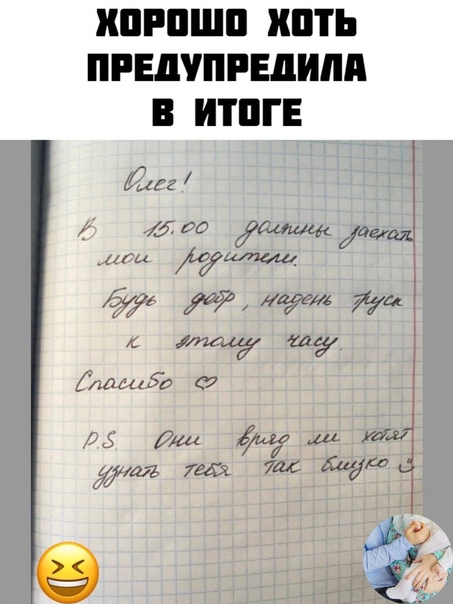 ХОРОШО ХОТЬ
ПРЕДУПРЕДИЛА
В ИТОГЕ
Олег!
В 15.00 должны заехать
мои родители.
Будь добр, надень трусы
к этому часу.
Спасибо ♡
P.S. Они вряд ли хотят
узнать тебя так близко